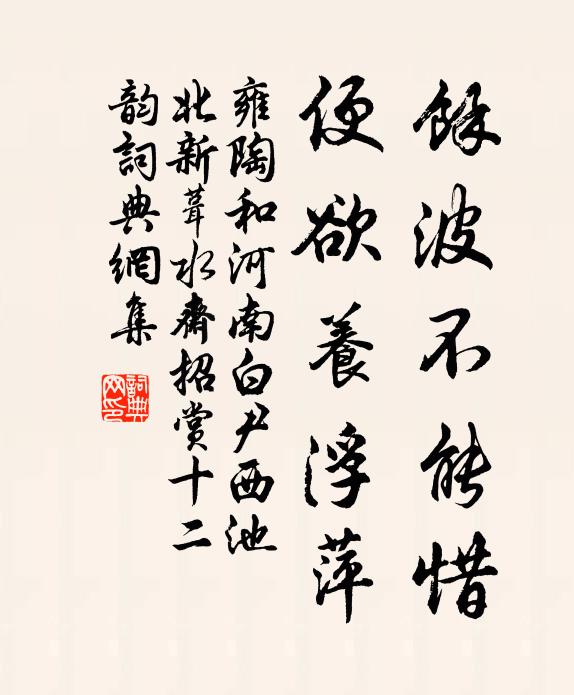 餘波不能惜
便欲養浮萍
雍陶和河南白尹西池
北新葺水齋招賞十二
韵詞典網集
詞典
网印